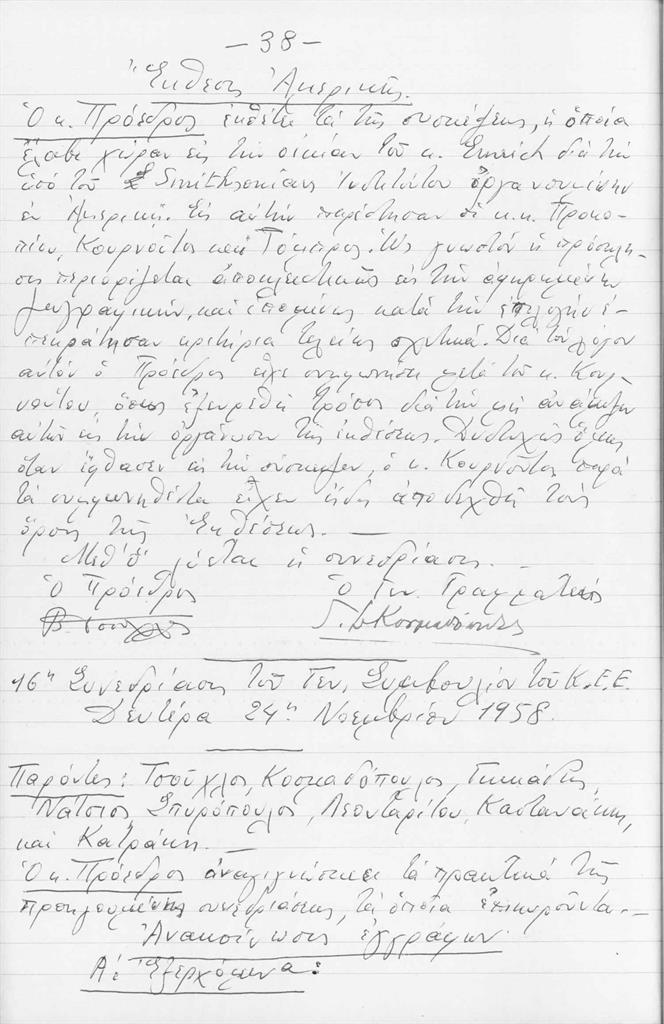 - 38 -
Ἔκθεσις Ἀμερικῆς.
Ὁ κ. Πρόεδρος ἐκθέτει τὰ τῆς συσκέψεως, ἡ ὁποία
ἔλαβε χώραν εἰς τὴν οἰκίαν τοῦ κ. Emrich διὰ τὴν
ὑπὸ τοῦ Smithsonian Ἰνστιτούτου ὀργανουμένην
ἐν Ἀμερικῇ. Εἰς αὐτὴν παρέστησαν οἱ κ.κ. Προκο-
πίου, Κουρνοῦτος καὶ Τόμπρος. Ὡς γνωστὸν ἡ πρόσκλη-
σις περιορίζεται ἀποκλειστικῶς εἰς τὴν ἀφηρημένην
ζωγραφικήν, καὶ ἑπομένως κατὰ τὴν ἐπιλογὴν ἐ-
πεκράτησαν κριτήρια τελείως σχετικά. Διὰ τὸν λόγον
αὐτὸν ὁ Πρόεδρος εἶχε συνεννοηθῆ μετὰ τοῦ κ. Κουρ-
νούτου, ὅπως ἐξευρεθῆ τρόπος διὰ τὴν μὴ ἀνάμιξιν
αὐτῶν εἰς τὴν ὀργάνωσιν τῆς ἐκθέσεως. Δυστυχῶς ὅμως
ὅταν ἔφθασεν εἰς τὴν σύσκεψιν, ὁ κ. Κουρνοῦτος παρὰ
τὰ συμφωνηθέντα εἶχεν ἤδη ἀποδεχθῆ τοὺς
ὅρους τῆς Ἐκθέσεως. —
Μεθ' ὃ λύεται ἡ συνεδρίασις. -
Ὁ Πρόεδρος Ὁ Γεν. Γραμματεὺς
16η Συνεδρίασις τοῦ Γεν. Συμβουλίου τοῦ Κ.Ε.Ε.
Δευτέρα 24η Νοεμβρίου 1958.
Παρόντες: Τσοῦχλος, Κοσμαδόπουλος,
Νάτσιος, Σπυρόπουλος, Λεονταρίτου, Καστανάκης,
καὶ Κατράκη. —
Ὁ κ. Πρόεδρος ἀναγιγνώσκει τὰ πρακτικὰ τῆς
προηγουμένης συνεδριάσεως, τὰ ὁποῖα ἐπικυροῦνται. -
Ἀνακοίνωσις ἐγγράφων.
Α! Ἐξερχόμενα: